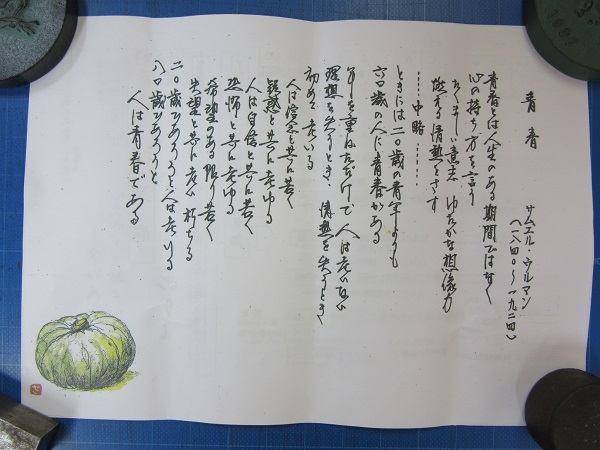 青春
サムエル・ウルマン
(一八四〇〜一九二四)
青春とは人生のある期間ではなく
心の持ち方を言う
たくましい意志 ゆたかな想像力
燃える情熱をさす
‥‥‥中略‥‥‥
ときには二〇歳の青年よりも
六〇歳の人に青春がある
年を重ねただけで人は老いない
理想を失うとき、情熱を失うとき
初めて老いる
人は信念と共に若く
疑惑と共に老ゆる
人は自信と共に若く
恐怖と共に老ゆる
希望のある限り若く
失望と共に老い朽ちる
二〇歳であろうと人は老いる
八〇歳であろうと
人は青春である
1997